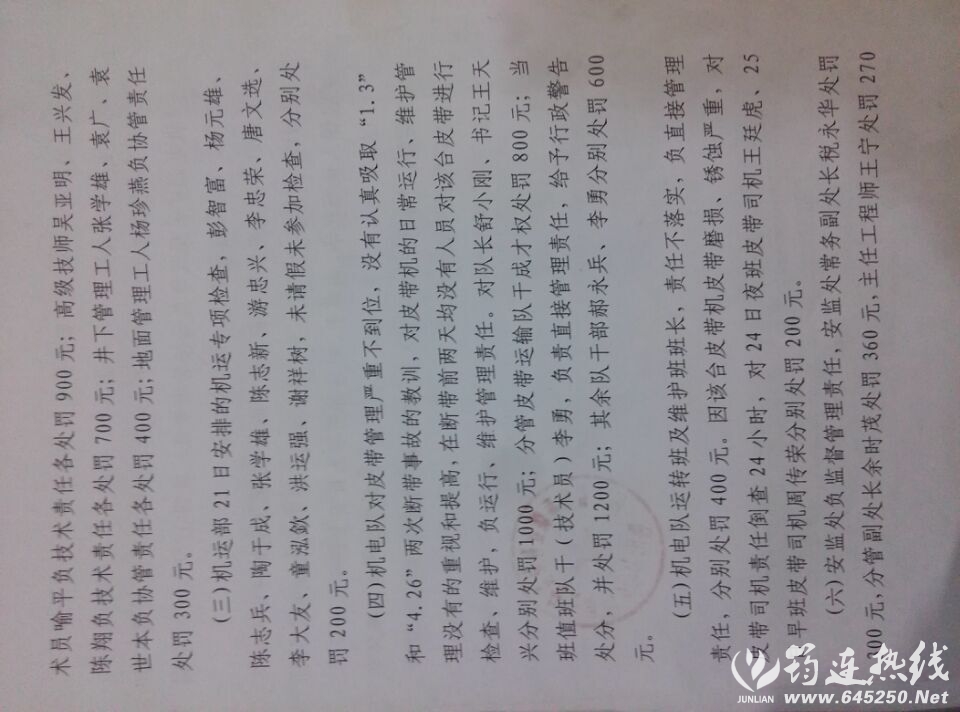 术员喻平负技术责任各处罚900元；高级技师吴亚明、王兴发、
陈翔负技术责任各处罚700元；井下管理工人张学雄、袁广、袁
世本负协管责任各处罚400元；地面管理工人杨珍燕负协管责任
处罚300元。
（三）机运部21日安排的机运专项检查，彭智富、杨元雄、
陈志兵、陶于成、张学雄、陈志新、游忠兴、李忠荣、唐文选、
李大友、童泓歛、洪运强、谢祥树，未请假未参加检查，分别处
罚200元。
（四）机电队对皮带管理严重不到位，没有认真吸取“1.3”
和“4.26”两次断带事故的教训，对皮带机的日常运行、维护管
理没有的重视和提高，在断带前两天均没有人员对该台皮带进行
检查、维护，负运行、维护管理责任。对队长舒小刚、书记王天
兴分别处罚1000元；分管皮带运输队干成才权处罚800元；当
班值班队干（技术员）李勇，负责直接管理责任，给予行政警告
处分，并处罚1200元；其余队干部郝永兵、李勇分别处罚600
元。
（五）机电队运转班及维护班班长，责任不落实，负直接管理
责任，分别处罚400元。因该台皮带机皮带磨损、锈蚀严重，对
皮带司机责任倒查24小时，对24日夜班皮带司机王廷虎、25
早班皮带司机周传荣分别处罚200元。
（六）安监处负监督管理责任，安监处常务副处长税永华处罚
200元，分管副处长余时茂处罚360元，主任工程师王宁处罚270
筠连热线
JUNLIAN
www.645250.Net